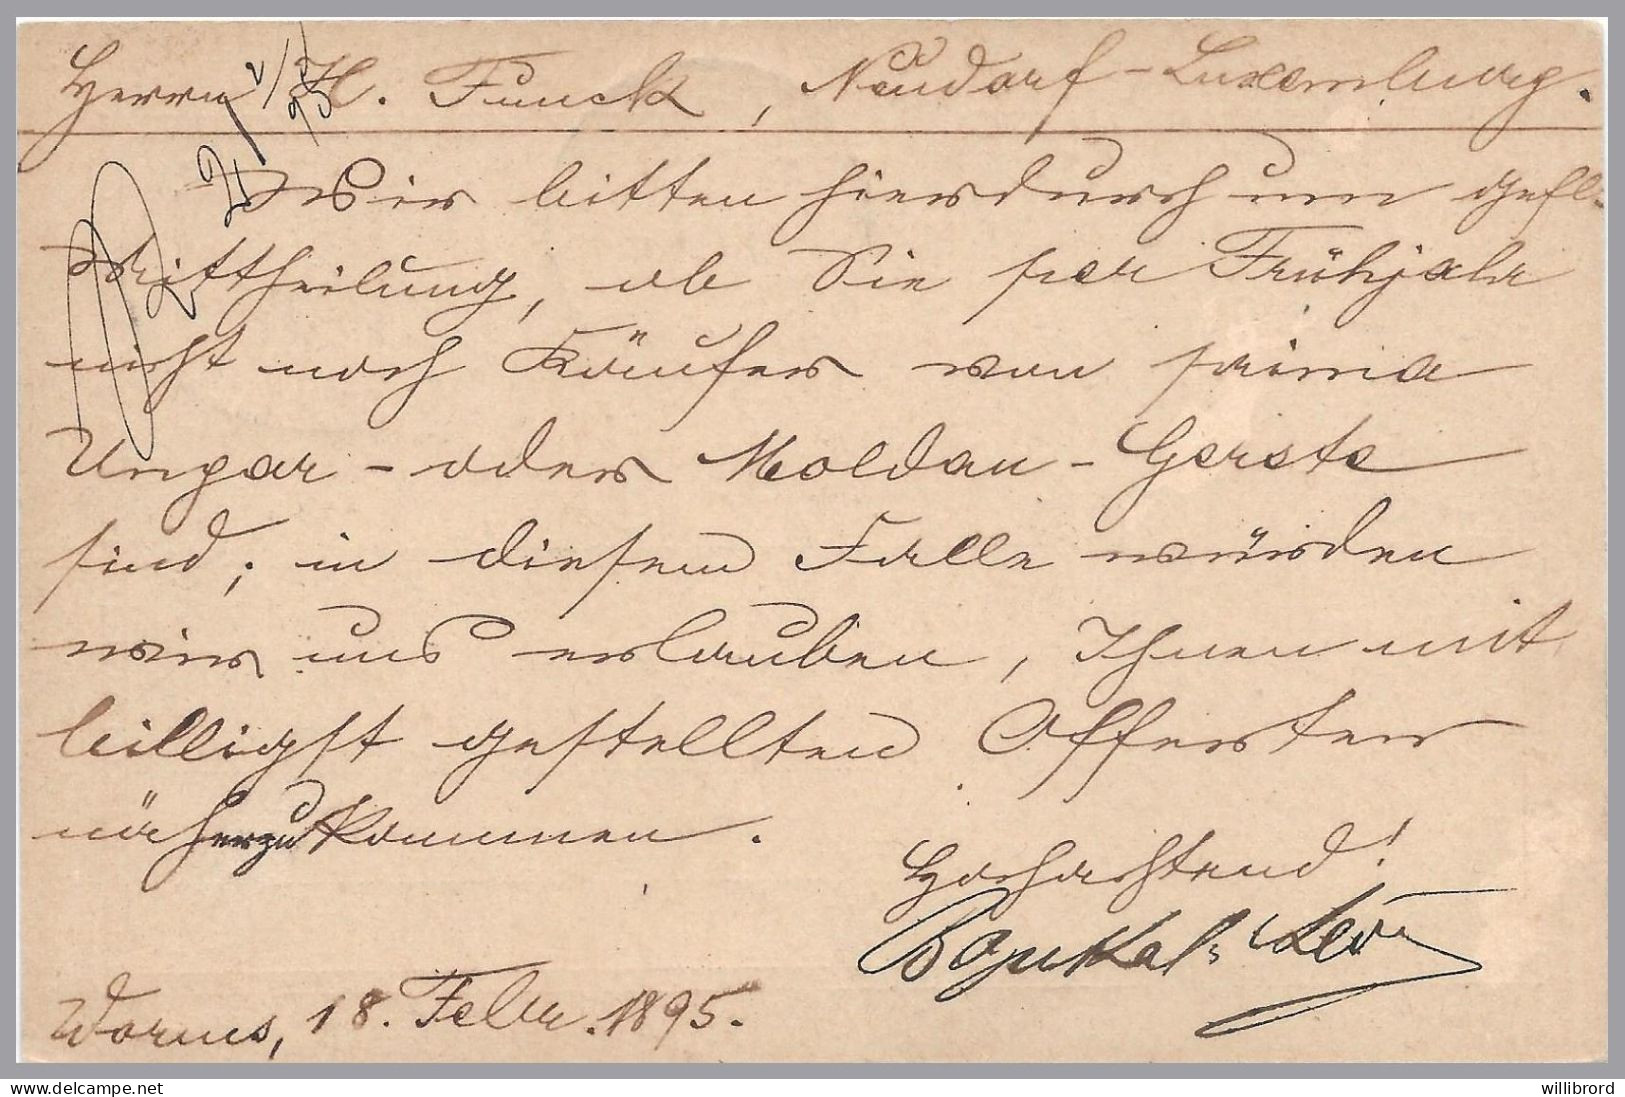 Herrn H. Funck, Neudorf-Luxemburg.
2/V 95
Wir bitten hierdurch um gefl.
Mittheilung, ob Sie per Frühjahr
nicht noch Käufer von prima
Ungar- oder Moldau-Gerste
sind; in diesem Falle würden
wir uns erlauben, Ihnen mit
billigst gestellten Offerten
näherzukommen.
Hochachtend!
Levi
Worms, 18. Febr. 1895.
willibrord